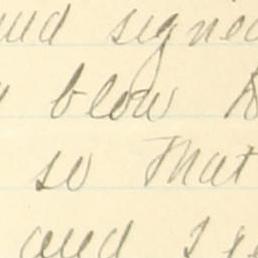 and signed
blow
so that
and I